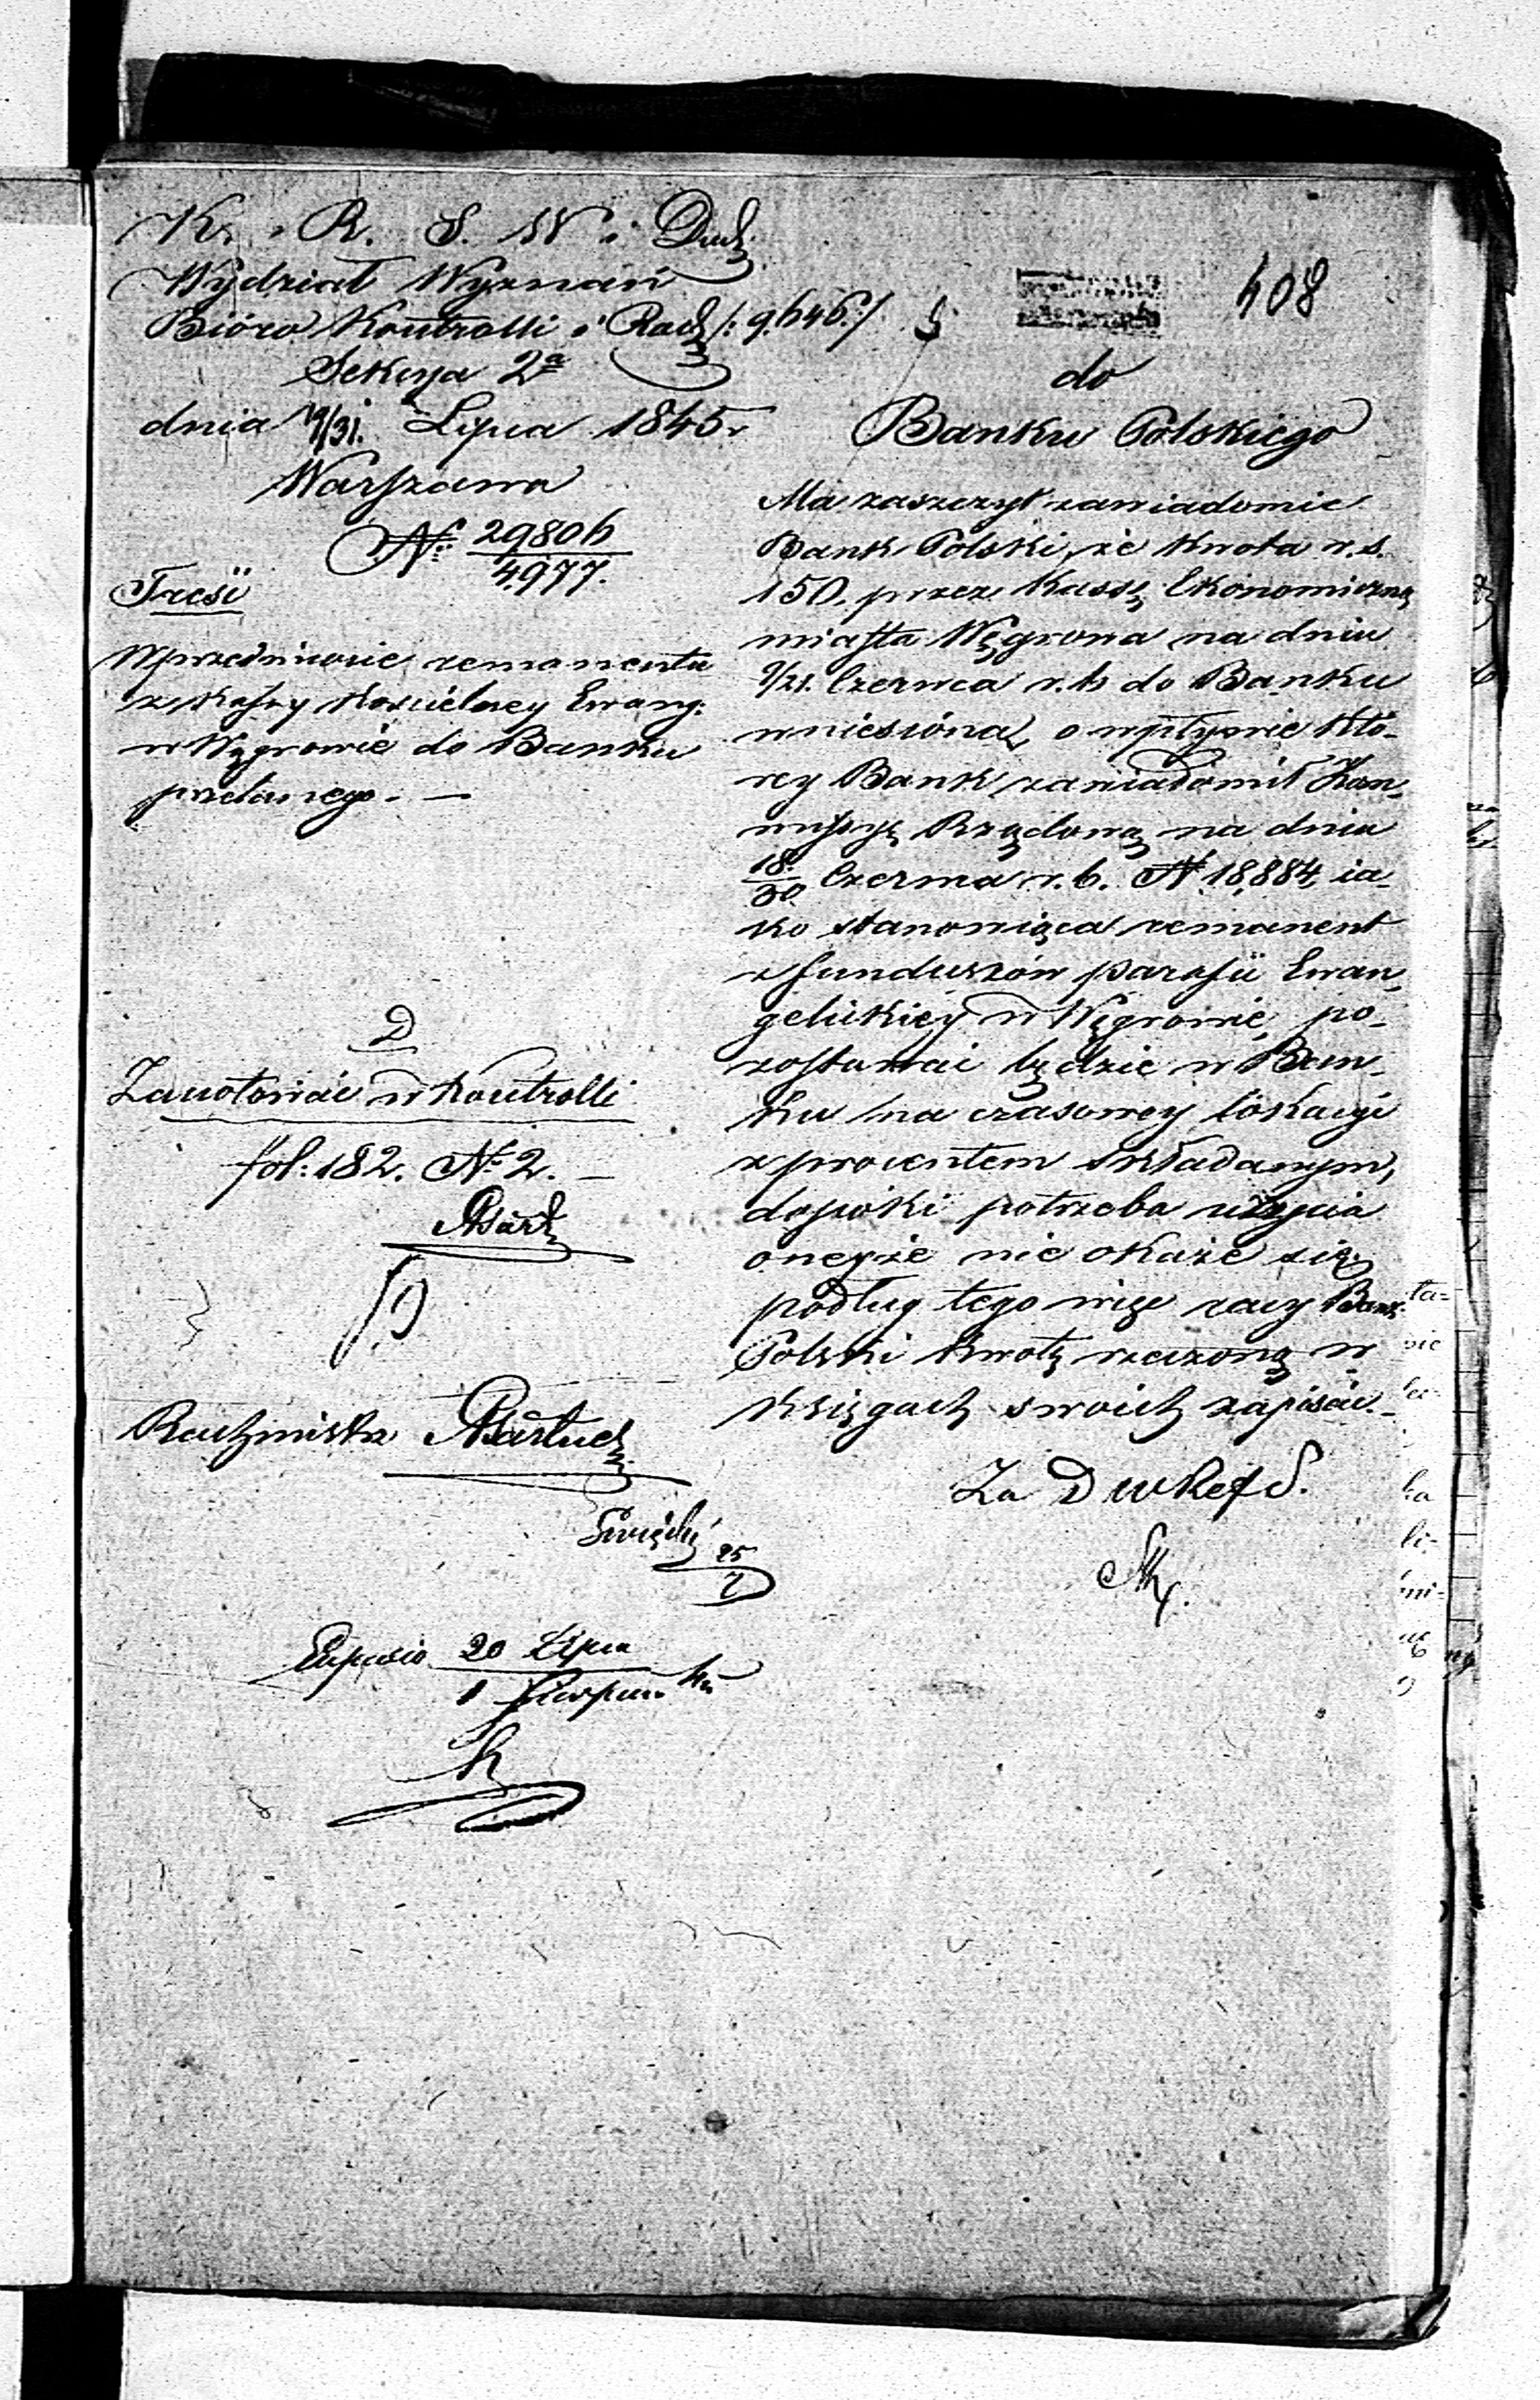 K. R. S. W. i Duch
Wydział Wyznań
Bióro Kontrolli i Rach /: 9.646 :/
Sekcya 2a
dnia 19/31. Lipca 1845 r
Warszawa
No 29806
4977.
Treść
W przedmiocie remanentu
z Kassy Kościelney Ewang:
w Węgrowie do Banku
przelanego. —
D
Zanotować w Kontrolli
fol: 182. No 2. —
Rachmistrz
20 Lipca
1 Sierpnia
408
do
Banku Polskiego
Ma zaszczyt zawiadomić
Bank Polski, że kwota r. s.
150. przez Kassę Ekonomiczną
miasta Węgrowa na dniu
9/21. Czerwca r. b. do Banku
wniesióna, o wpływie któ-
rey Bank zawiadomił Kom-
missyę Rządową na dniu
18/30 Czerwca r. b. No 18,884, ia-
ko stanowiąca remanent
z funduszów parafii Ewan-
gelickiey w Węgrowie, po-
zostawać będzie w Ban-
ku na czasowey lokacyi
z procentem składanym,
dopóki potrzeba użycia
oneyże nie okaże się,
podług tego więc raczy Bank
Polski kwotę rzeczoną w
księgach swoich zapisać. —
Za D